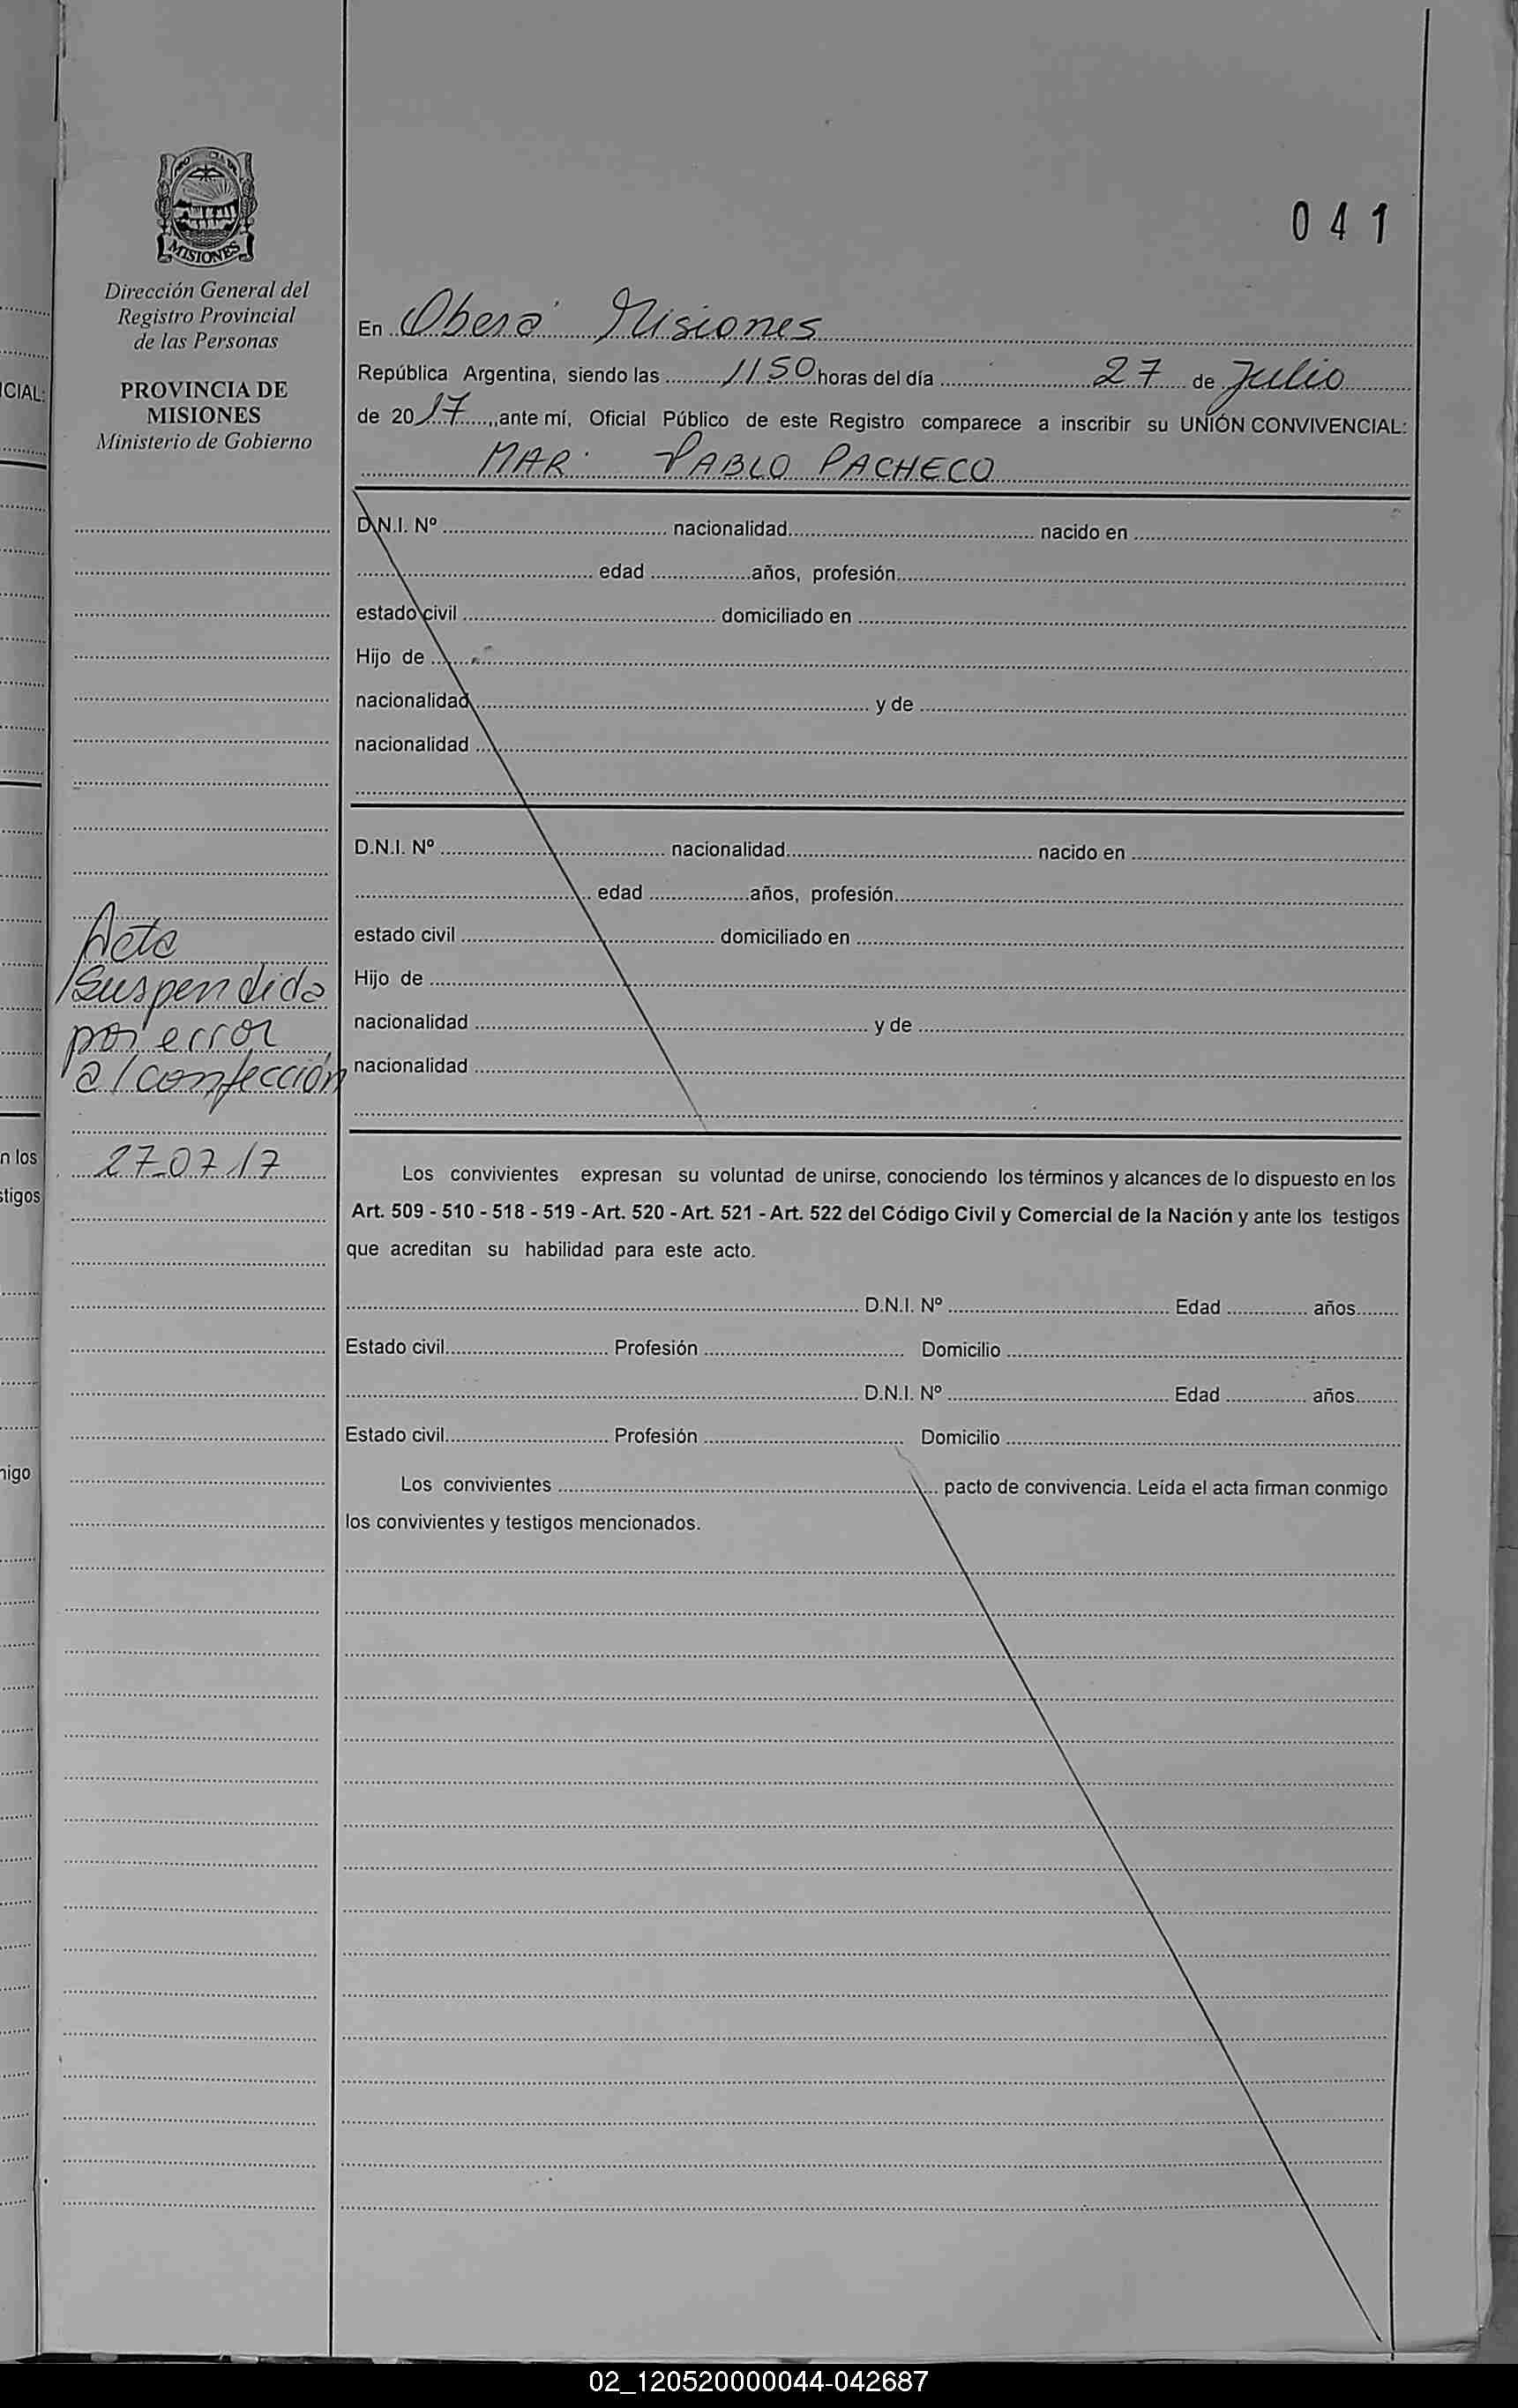 MISIONES
Dirección General del
Registro Provincial
de las Personas
PROVINCIA DE
MISIONES
Ministerio de Gobierno
Acta
Suspendida
por error
a/confección
27-07-17
041
En Oberá Misiones
República Argentina, siendo las 1150 horas del día 27 de Julio
de 2017, ante mí, Oficial Público de este Registro comparece a inscribir su UNIÓN CONVIVENCIAL:
MAR PABLO PACHECO
D.N.I. Nº nacionalidad nacido en
edad años, profesión
estado civil domiciliado en
Hijo de
nacionalidad y de
nacionalidad
D.N.I. Nº nacionalidad nacido en
edad años, profesión
estado civil domiciliado en
Hijo de
nacionalidad y de
nacionalidad
Los convivientes expresan su voluntad de unirse, conociendo los términos y alcances de lo dispuesto en los
Art. 509 - 510 - 518 - 519 - Art. 520 - Art. 521 - Art. 522 del Código Civil y Comercial de la Nación y ante los testigos
que acreditan su habilidad para este acto.
D.N.I. Nº Edad años
Estado civil Profesión Domicilio
D.N.I. Nº Edad años
Estado civil Profesión Domicilio
Los convivientes pacto de convivencia. Leída el acta firman conmigo
los convivientes y testigos mencionados.
02_120520000044-042687